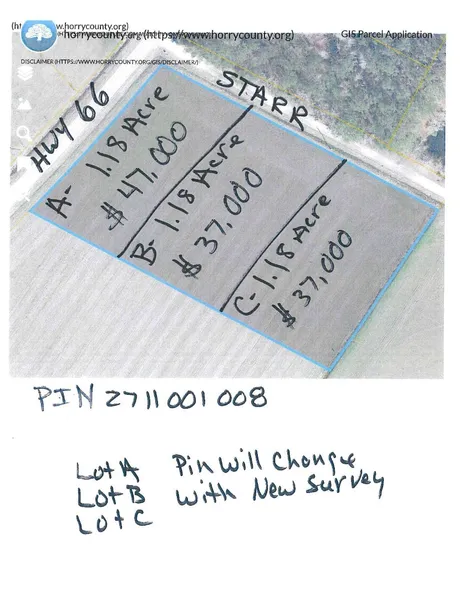 (ht w.horrycounty.org)
horrycounty.org (https://www.horrycounty.org)
GIS Parcel Application
DISCLAIMER (HTTPS://WWW.HORRYCOUNTY.ORG/GIS/DISCLAIMER/)
HWY 66
STARR
A- 1.18 Acre
$47,000
B- 1.18 Acre
$37,000
C- 1.18 Acre
$37,000
PIN 2711001008
Lot A Pin will Change
Lot B with New Survey
Lot C